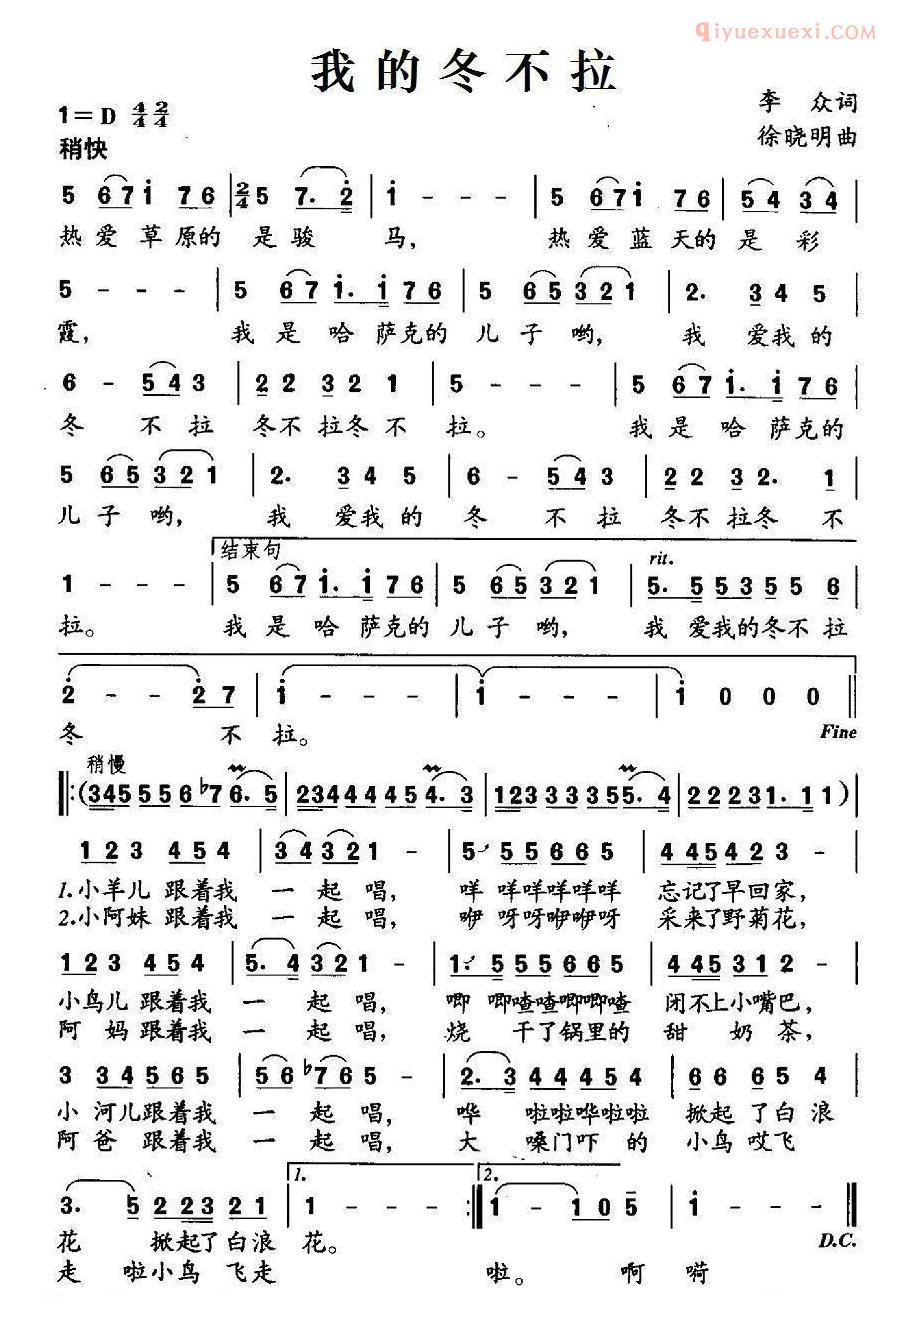 qiyuexuexi.com
我的冬不拉
李 众词
1=D 4/4 2/4
徐晓明曲
稍快
5 671 76 | 2/4 5 7. 2 | 1 - - - | 5 671 76 | 54 34 |
热爱草原的 是骏 马， 热爱蓝天的是彩
5 - - - | 5 67 1. 1 76 | 5 65 321 | 2. 3 4 5 |
霞， 我是哈萨克的 儿子哟， 我 爱我的
6 - 54 3 | 22 32 1 | 5 - - - | 5 67 1. 1 76 |
冬 不拉 冬不拉冬不 拉。 我是哈萨克的
5 65 321 | 2. 34 5 | 6 - 54 3 | 22 32. 1 |
儿子哟， 我 爱我的 冬 不拉 冬不拉冬 不
结束句
rit.
1 - - - | 5 67 1. 1 76 | 5 65 321 | 5. 5535 5 6 |
拉。 我是哈萨克的 儿子哟， 我 爱我的冬不拉
2 - - 27 | 1 - - - | 1 - - - | 1 0 0 0 ‖
冬 不 拉。 Fine
稍慢
‖:(345 5 5 6 ♭7 6. 5 | 234 4 4 4 5 4. 3 | 123 3 3 3 5 5. 4 | 2 2 2 3 1. 1 1)|
12 3 45 4 | 34 32 1 - | 5 55 66 5 | 4 45 42 3 - |
1.小羊儿 跟着我 一 起 唱， 咩 咩咩咩咩咩 忘记了早回家，
2.小阿妹 跟着我 一 起 唱， 咿 呀呀咿咿呀 采来了野菊花，
12 3 45 4 | 5. 4 32 1 - | 1. 5 55 66 5 | 4 45 31 2 - |
小鸟儿 跟着我 一 起 唱， 唧 唧喳喳唧唧喳 闭不上小嘴巴，
阿 妈 跟着我 一 起 唱， 烧 干了锅里的 甜 奶 茶，
3 34 56 5 | 56 ♭76 5 - | 2. 3 44 45 4 | 66 65 4 |
小 河儿跟着我 一 起 唱， 哗 啦啦哗啦啦 掀起了白浪
阿 爸 跟着我 一 起 唱， 大 嗓门吓 的 小鸟哎飞
1. 2.
3. 5 22 3 21 | 1 - - - :‖ 1 - 10 5 | 1 - - - ‖
花 掀起了白浪 花。 D.C.
走 啦小鸟 飞走 啦。 啊 嗬